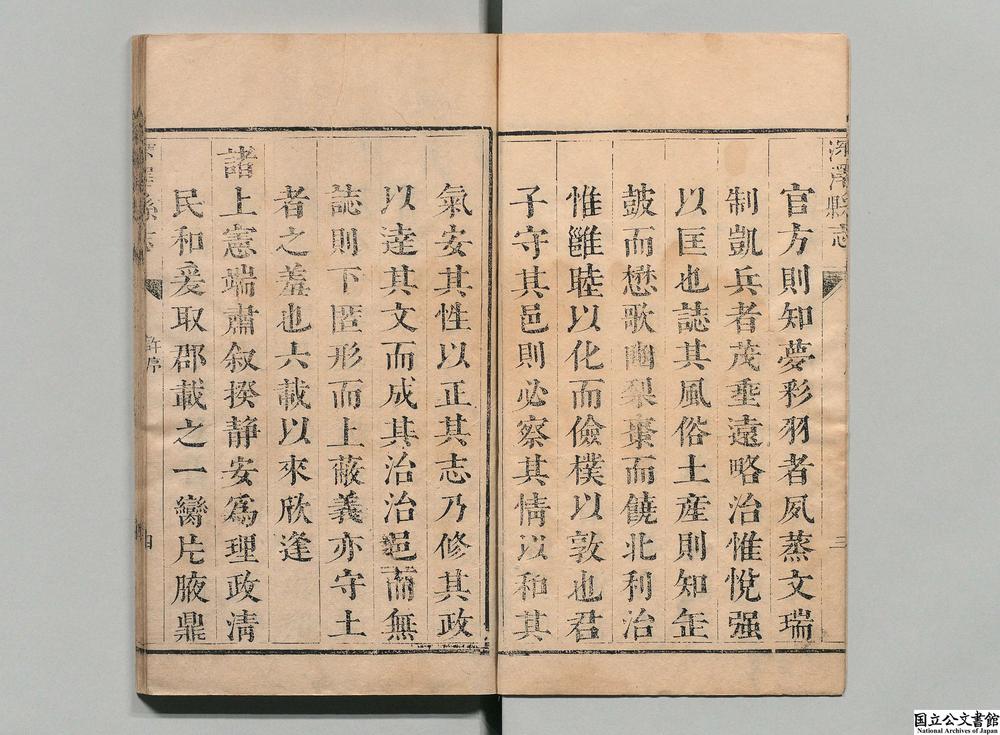 深澤縣志
三
官方則知夢彩羽者夙蒸文瑞
制凱兵者茂垂遠略治惟悅强
以匡也誌其風俗土産則知缶
鼓而懋歌豳梨棗而饒北利治
惟雝睦以化而儉樸以敦也君
子守其邑則必察其情以和其
氣安其性以正其志乃修其政
以達其文而成其治治邑而無
誌則下匿形而上蔽義亦守土
者之羞也六載以來欣逢
諸上憲端肅叙揆静安爲理政清
民和爰取郡載之一臠片腋鼎
深澤縣志
四
国立公文書館
National Archives of Japan